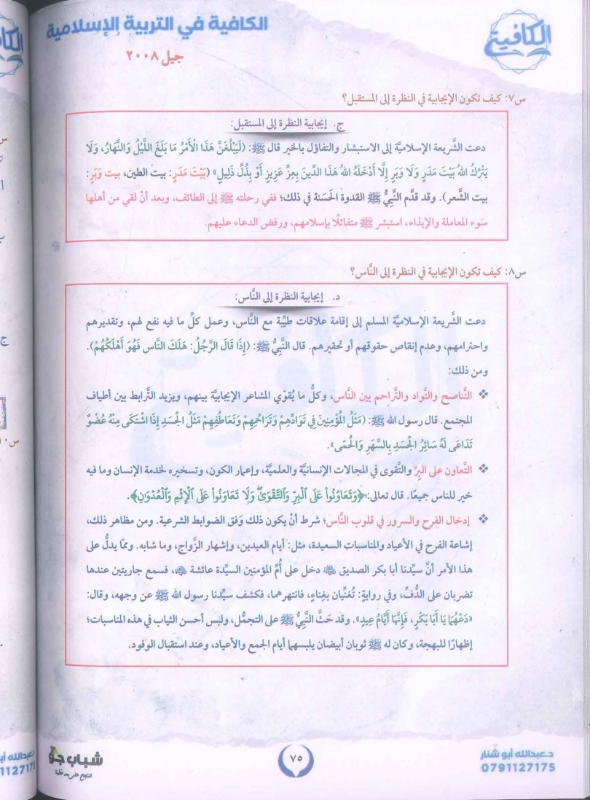 الكافية في التربية الإسلامية
جيل ٢٠٠٨
الكافية
س٧: كيف تكون الإيجابية في النظرة إلى المستقبل؟
ج. إيجابية النظرة إلى المستقبل:
دعت الشَّريعة الإسلاميَّة إلى الاستبشار والتفاؤل بالخير قال ﷺ: (لَيَبْلُغَنَّ هَذَا الْأَمْرُ مَا بَلَغَ اللَّيْلُ وَالنَّهَارُ، وَلَا
يَتْرُكُ اللهُ بَيْتَ مَدَرٍ وَلَا وَبَرٍ إِلَّا أَدْخَلَهُ اللهُ هَذَا الدِّينَ بِعِزِّ عَزِيزٍ أَوْ بِذُلِّ ذَلِيلٍ» (بَيْتَ مَدَرٍ: بيت الطين، بيت وَبَرٍ:
بيت الشَّعر). وقد قدَّم النَّبيُّ ﷺ القدوة الحَسَنة في ذلك؛ ففي رحلته ﷺ إلى الطائف، وبعد أنْ لقي من أهلها
سُوء المعاملة والإيذاء، استبشر ﷺ متفائلًا بإسلامهم، ورفض الدعاء عليهم.
س٨: كيف تكون الإيجابية في النظرة إلى النَّاس؟
د. إيجابية النظرة إلى النَّاس:
دعت الشَّريعة الإسلاميَّة المسلم إلى إقامة علاقات طيِّبة مع النَّاس، وعمل كلِّ ما فيه نفع لهم، وتقديرهم
واحترامهم، وعدم إنقاص حقوقهم أو تحقيرهم. قال النَّبيُّ ﷺ: (إِذَا قَالَ الرَّجُلُ: هَلَكَ النَّاس فَهُوَ أَهْلَكُهُمْ).
ومن ذلك:
❖ التَّناصح والتَّواد والتَّراحم بين النَّاس، وكلُّ ما يُقوّي المشاعر الإيجابيَّة بينهم، ويزيد التَّرابط بين أطياف
المجتمع. قال رسول الله ﷺ: (مَثَلُ الْمُؤْمِنِينَ فِي تَوَادِّهِمْ وَتَرَاحُمِهِمْ وَتَعَاطُفِهِمْ مَثَلُ الْجَسَدِ إِذَا اشْتَكَى مِنْهُ عُضْوٌ
تَدَاعَى لَهُ سَائِرُ الْجَسَدِ بِالسَّهَرِ وَالْحُمَّى».
❖ التَّعاون على البِرِّ والتَّقوى في المجالات الإنسانيَّة والعلميَّة، وإعمار الكون، وتسخيره لخدمة الإنسان وما فيه
خير للناس جميعًا. قال تعالى:﴿وَتَعَاوَنُوا۟ عَلَى ٱلْبِرِّ وَٱلتَّقْوَىٰ ۖ وَلَا تَعَاوَنُوا۟ عَلَى ٱلْإِثْمِ وَٱلْعُدْوَٰنِ﴾.
❖ إدخال الفرح والسرور في قلوب النَّاس؛ شرط أنْ يكون ذلك وَفق الضوابط الشرعية. ومن مظاهر ذلك،
إشاعة الفرح في الأعياد والمناسبات السعيدة، مثل: أيام العيدين، وإشهار الزَّواج، وما شابه. وممّا يدلُّ على
هذا الأمر أنَّ سيِّدنا أبا بكر الصديق دخل على أُمِّ المؤمنين السيِّدة عائشة، فسمع جاريتين عندها
تضربان على الدُّفِّ، وفي روايةٍ: تُغنِّيان بغِناءٍ، فانتهرهما، فكشف سيِّدنا رسول الله ﷺ عن وجهه، وقال:
«دَعْهُمَا يَا أَبَا بَكْرٍ، فَإِنَّهَا أَيَّامُ عِيدٍ». وقد حَثَّ النَّبيُّ ﷺ على التجمُّل، ولبس أحسن الثياب في هذه المناسبات؛
إظهارًا للبهجة، وكان له ﷺ ثوبان أبيضان يلبسهما أيام الجمع والأعياد، وعند استقبال الوفود.
د.عبدالله أبو شنار
0791127175
٧٥
شباب جو